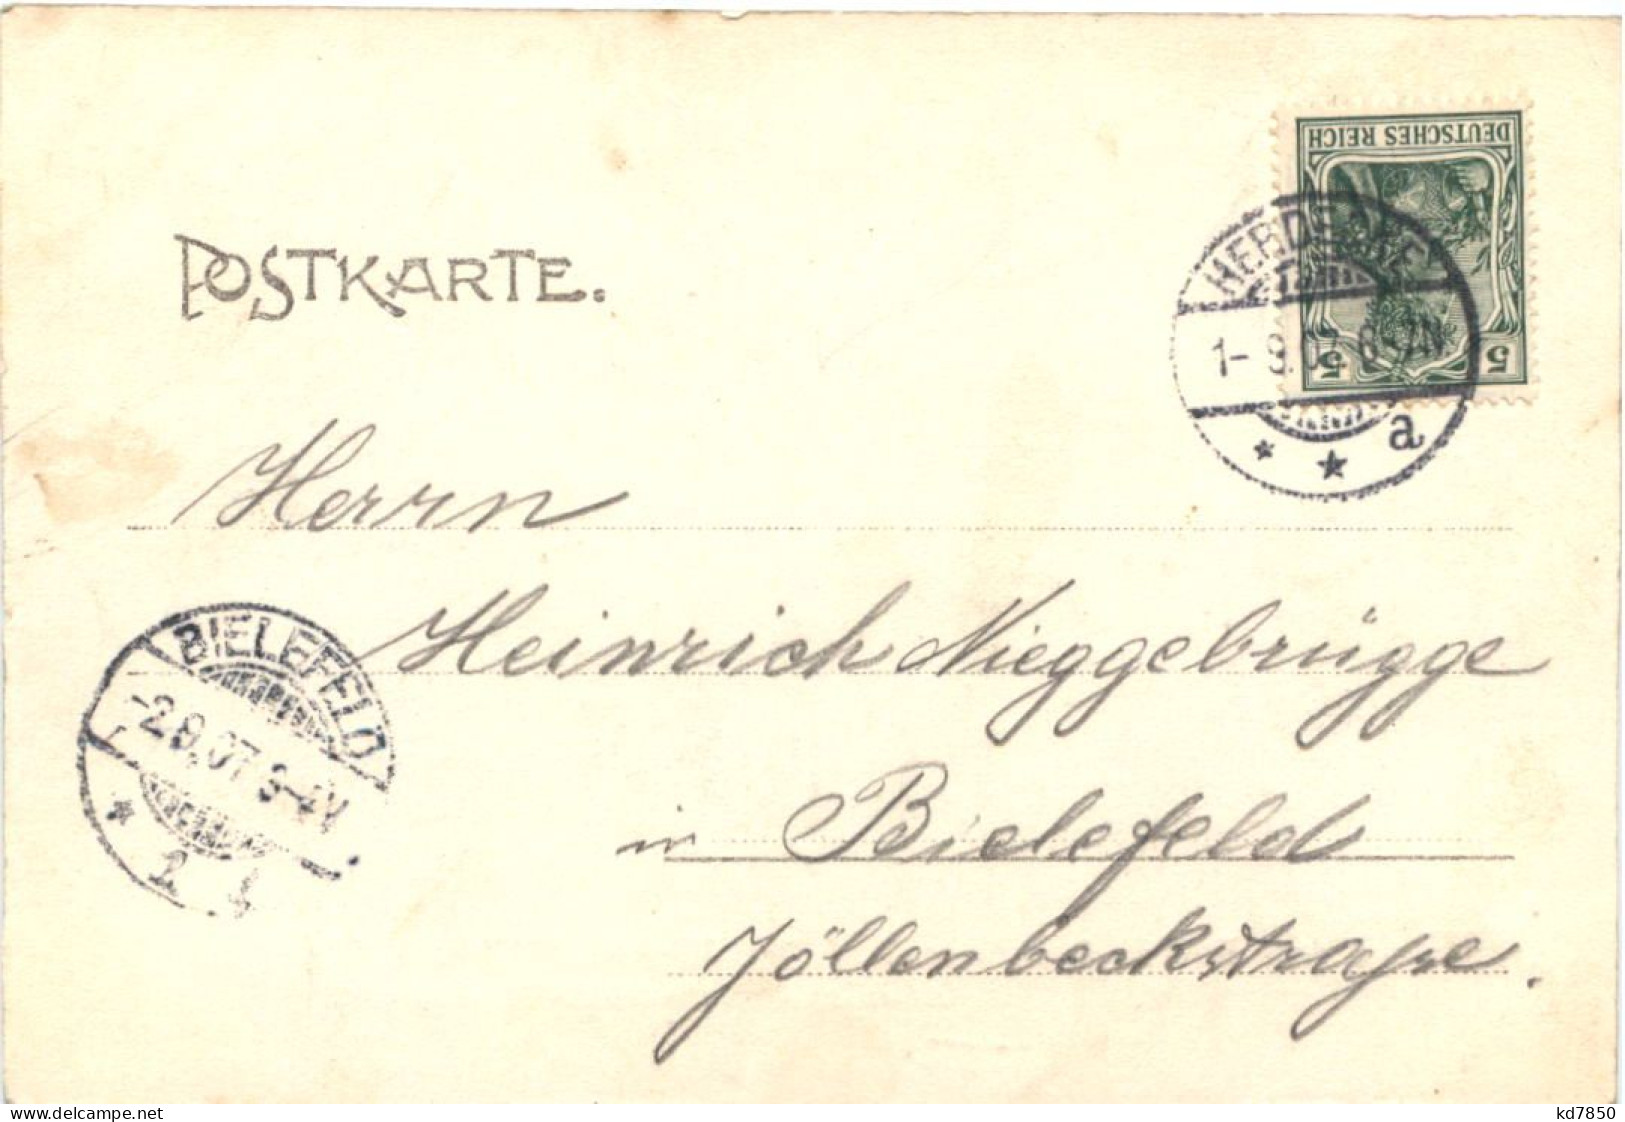 POSTKARTE.
DEUTSCHES REICH
5 5
HERDECKE
1-9.07. 6-7N
a
Herrn
Heinrich Nieggebrügge
in Bielefeld
Jöllenbeckstraße.
BIELEFELD
-2.9.07. 3-4V
kd7850
www.delcampe.net